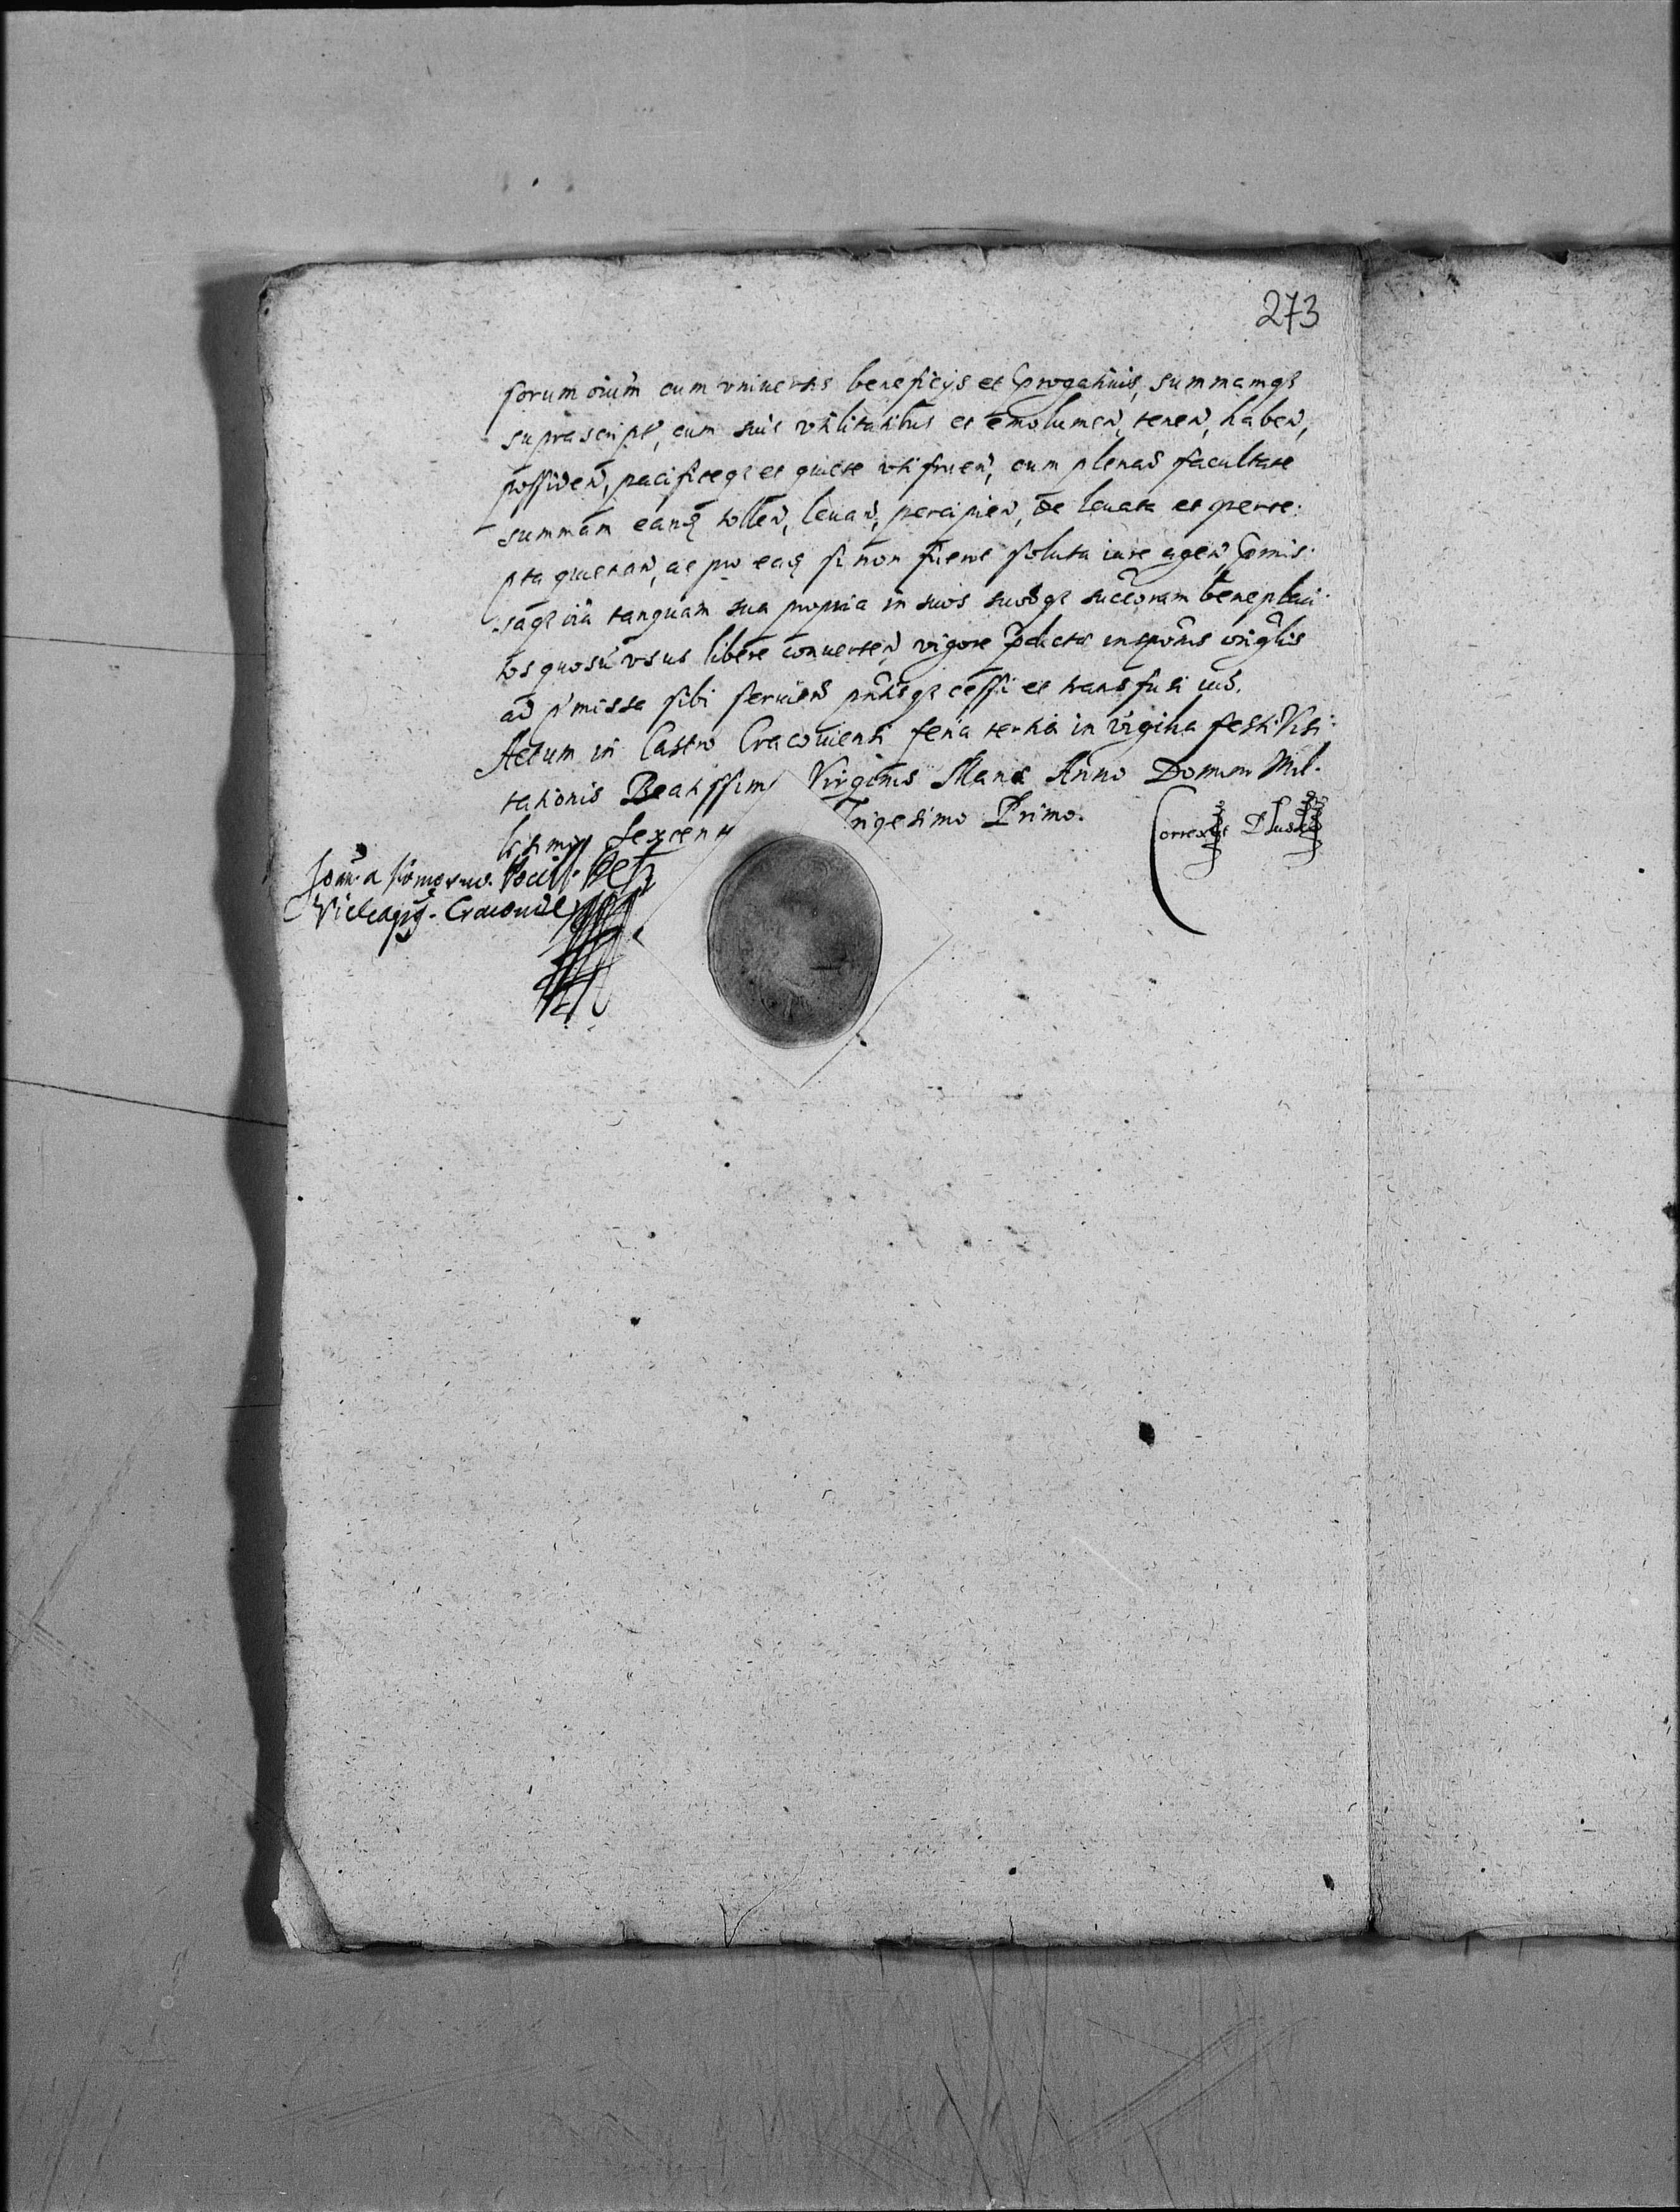 273
sorum oium cum vniuersis beneficijs et prrogatiuis, summamqz
suprascript, cum suis vtilitatibus et emolumen, tenen, haben,
possiden, pacificeqz et quiete vtifruen, cum plenaꝫ facultate
summam eanꝫ tollen, leuan, percipien, de leuata et perce:
pta quietan, ac pro eaꝫ si non fuerit soluta iure agen pmis:
saqz oia tanquam sua propria in suos suorqz succorum beneplaci:
tos quosu vsus libere conuerten, vigore pdictae inspcnis origlis
ad pmissa sibi seruien pntisqz cessi et transfusi iuꝫ.
Actum in Castro Cracouiensi feria tertia in vigilia festi Visi:
tationis Beatissim Virginis Mariae Anno Domini Mil:
lesimo Sexcen Trigesimo Primo.
Joan: a
Vicecapit. Cracouie
Correxit